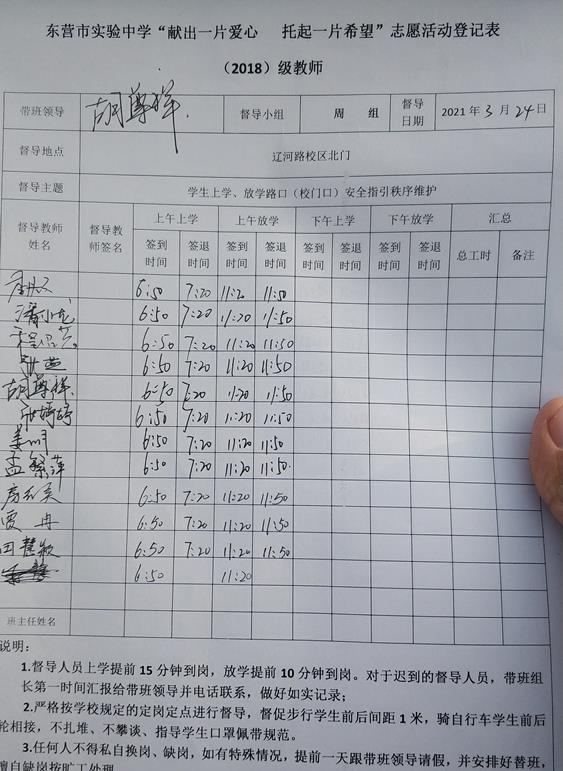 东营市实验中学“献出一片爱心 托起一片希望”志愿活动登记表
（2018）级教师
带班领导 胡尊祥 督导小组 周 组 督导日期 2021年3月24日
督导地点 辽河路校区北门
督导主题 学生上学、放学路口（校门口）安全指引秩序维护
督导教师姓名 督导教师签名 上午上学 上午放学 下午上学 下午放学 汇总
签到时间 签退时间 签到时间 签退时间 签到时间 签退时间 签到时间 签退时间 总工时 备注
6:50 7:20 11:20 11:50
6:50 7:20 11:20 11:50
6:50 7:20 11:20 11:50
6:50 7:20 11:20 11:50
胡尊祥 6:50 7:20 11:20 11:50
6:50 7:20 11:20 11:50
姜 6:50 7:20 11:20 11:50
孟 萍 6:50 7:20 11:20 11:50
房 6:50 7:20 11:20 11:50
贾冉 6:50 7:20 11:20 11:50
田慧颖 6:50 7:20 11:20 11:50
6:50 11:20
班主任姓名
说明：
1.督导人员上学提前15分钟到岗，放学提前10分钟到岗。对于迟到的督导人员，带班组
长第一时间汇报给带班领导并电话联系，做好如实记录；
2.严格按学校规定的定岗定点进行督导，督促步行学生前后间距1米，骑自行车学生前后
轮相接，不扎堆、不攀谈、指导学生口罩佩带规范。
3.任何人不得私自换岗、缺岗，如有特殊情况，提前一天跟带班领导请假，并安排好替班，
擅自缺岗按旷工处理